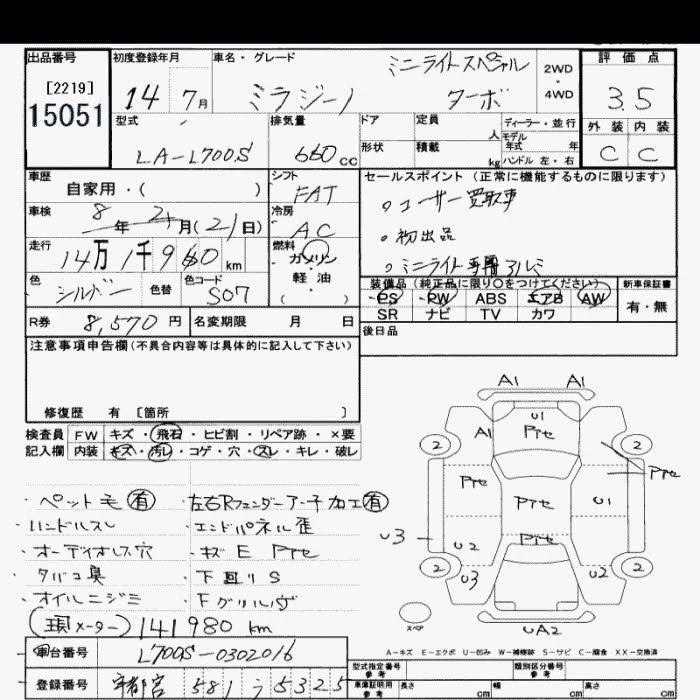 出品番号 初度登録年月 車名・グレード 評価点
[2219]
15051
14年 7月 ミラジーノ ミニライトスペシャル ターボ
2WD ・ 4WD
3.5
型式 排気量 ドア 定員 人 ディーラー・並行 外装 内装
モデル年式 年
LA-L700S 660cc 形状 積載 kg ハンドル 左・右 C C
車歴 シフト セールスポイント(正常に機能するものに限ります)
自家用・( ) FAT
。ユーザー買取車
車検 8年 2月(21日) 冷房 AC
。初出品
走行 14万1千960km 燃料 ガソリン・軽油 ( )
。ミニライト専用アルミ
色 シルバー 色替 色コード S07
装備品(純正品に限り○をつけてください) 新車保証書
PS PW ABS エアB AW
SR ナビ TV カワ 有・無
R券 8,570円 名変期限 月 日 後日品
注意事項申告欄(不具合内容等は具体的に記入して下さい)
修復歴 有 〔箇所 〕
検査員 FW キズ・飛石・ヒビ割・リペア跡・×要
記入欄 内装 キズ・汚レ・コゲ・穴・スレ・キレ・破レ
・ペット毛有 ・左右Rフェンダーアーチ加工有
・ハンドルスレ ・エンドパネル歪
・オーディオレス穴 ・キズ E Pte
・タバコ臭 ・下回りS
・オイルニジミ ・Fグリル
(現メーター) 141980 km
車台番号 L700S-0302016
登録番号 宇都宮 581 5325
A1 A1
U1
A1 Pte
2 2
Pte
Pte Pte U1
U3 U2 Pte
2 U3 U2 2
スペア UA2
A-キズ E-エクボ U-凹み W-補修跡 S-サビ C-腐食 XX-交換済
型式指定番号 参考 類別区分番号 参考
車庫証明用 参考 長さ cm 幅 cm 高さ cm